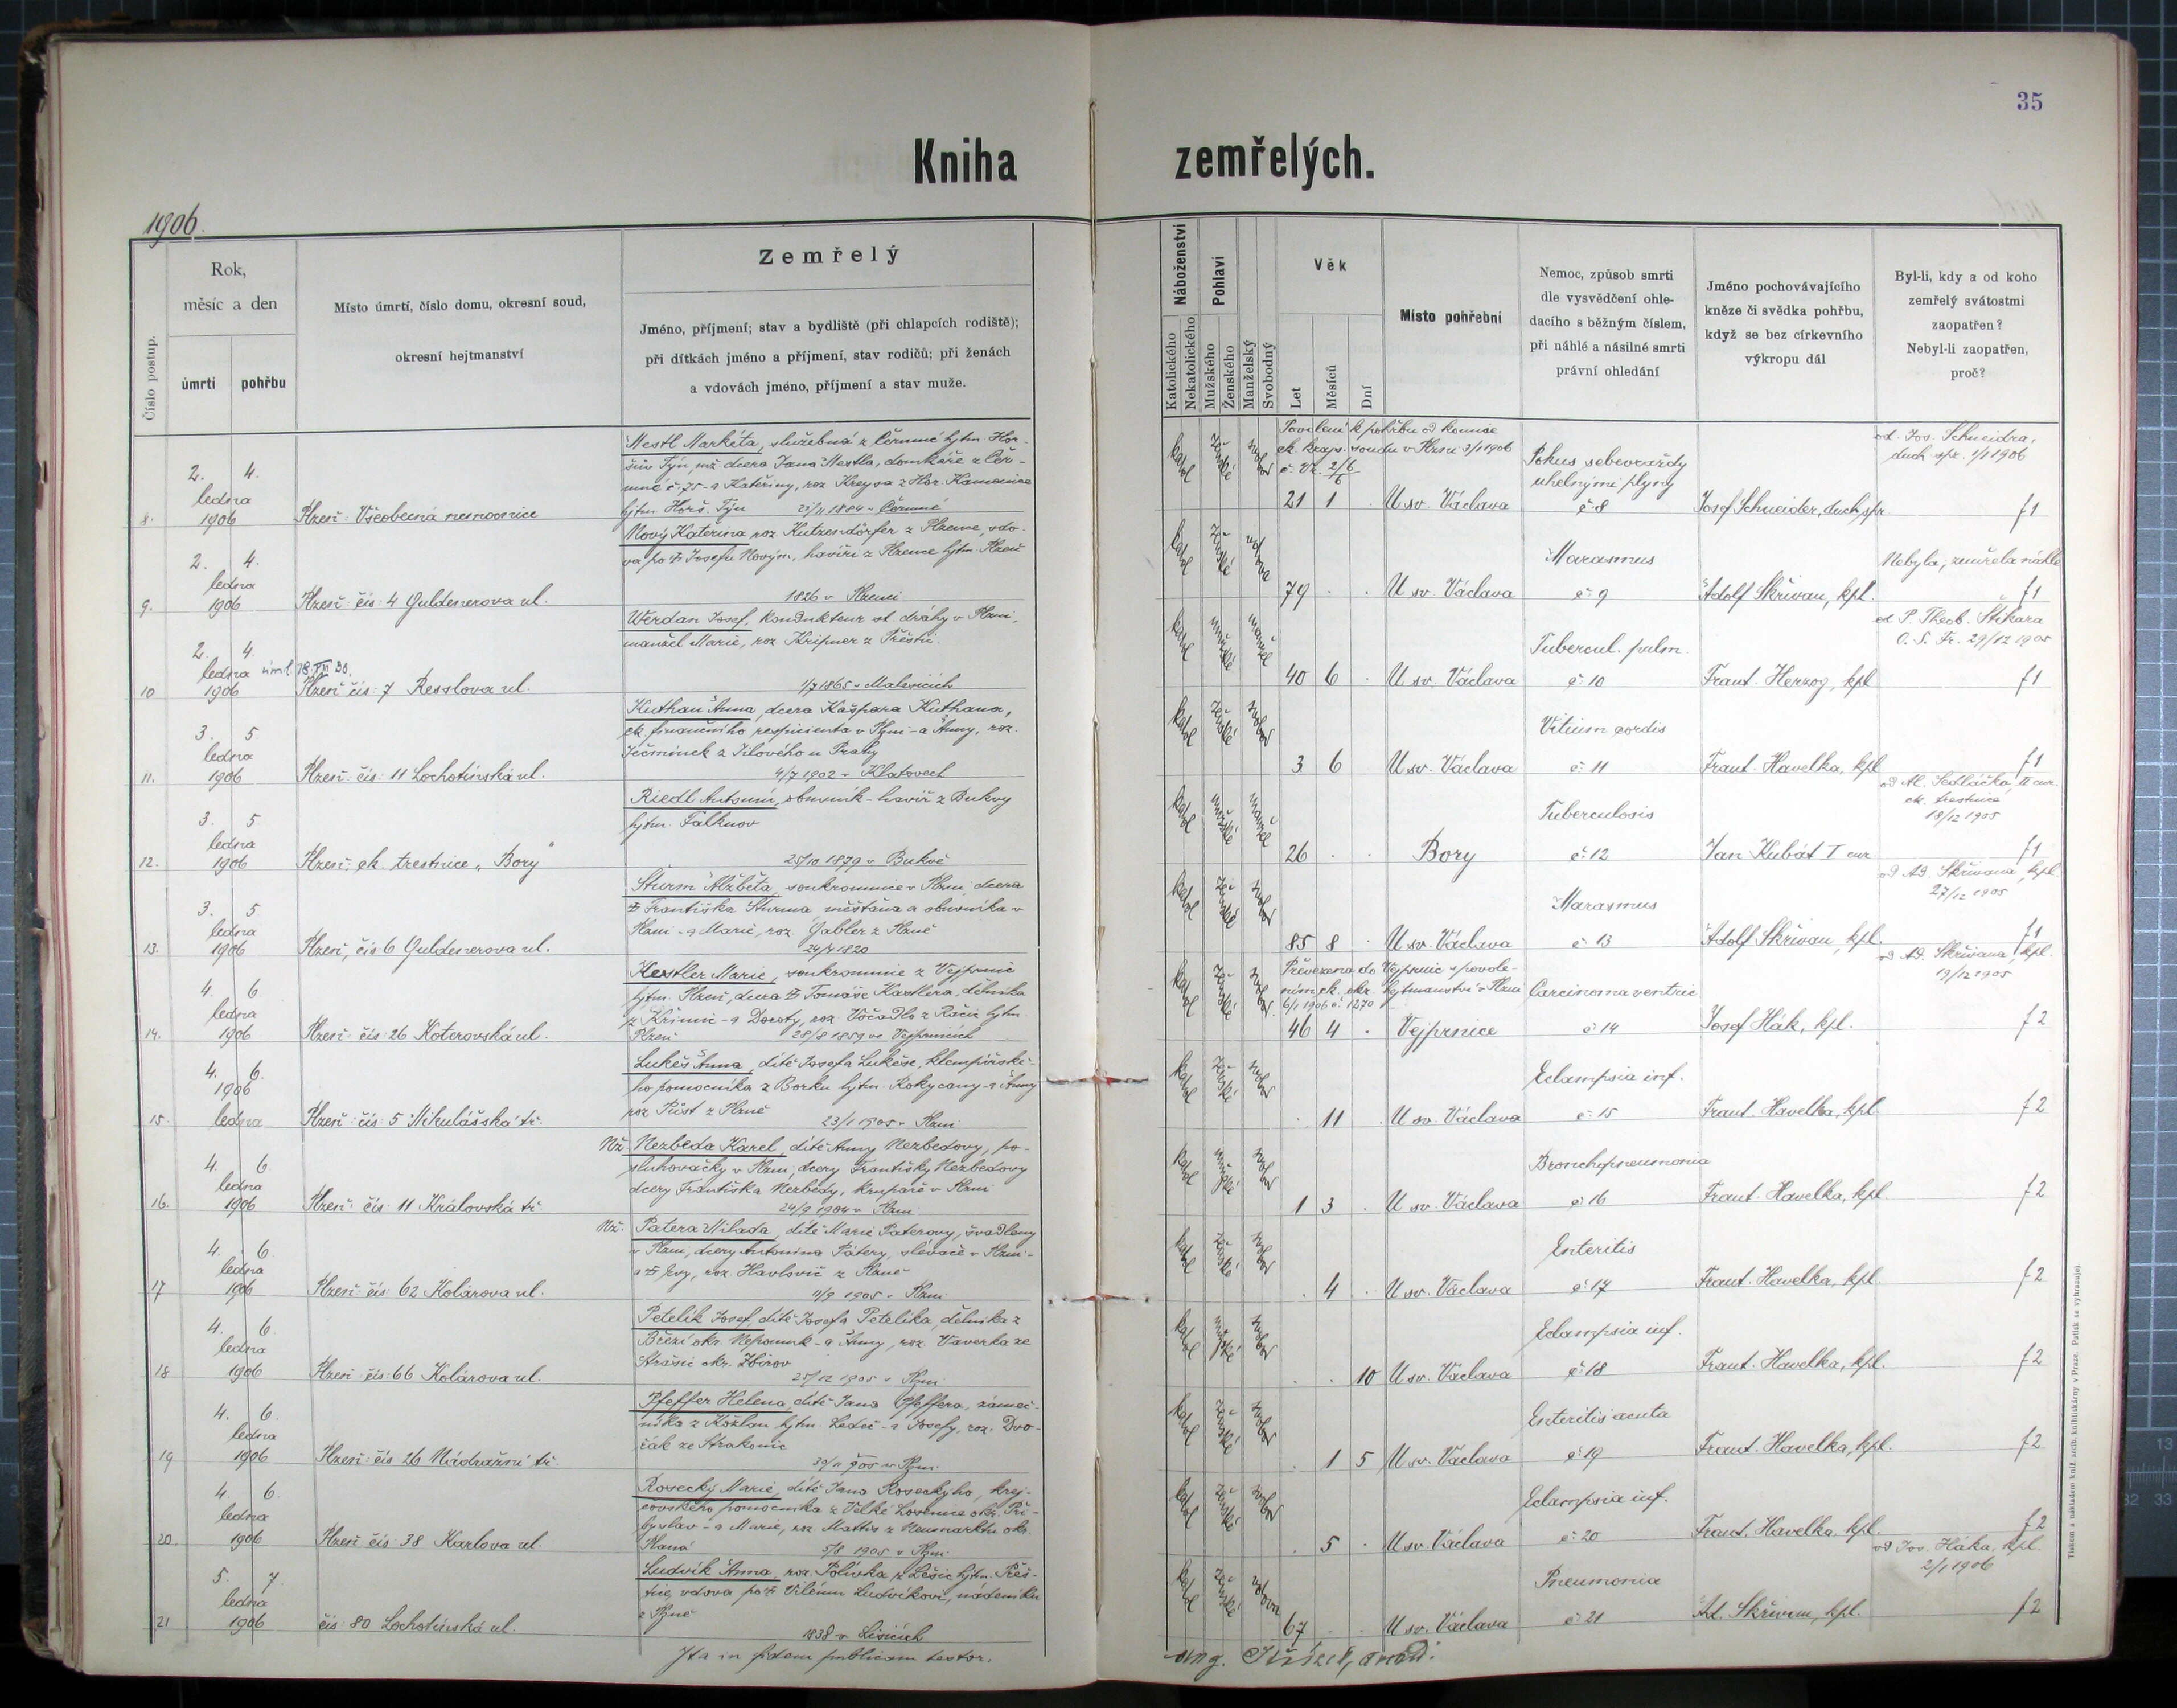 35
Kniha zemřelých.
1906.
Číslo postup.
Rok,
měsíc a den
úmrtí
pohřbu
Místo úmrtí, číslo domu, okresní soud,
okresní hejtmanství
Zemřelý
Jméno, příjmení; stav a bydliště (při chlapcích rodiště);
při dítkách jméno a příjmení, stav rodičů; při ženách
a vdovách jméno, příjmení a stav muže.
Náboženství
Katolického
Nekatolického
Pohlaví
Mužského
Ženského
Manželský
Svobodný
Věk
Let
Měsíců
Dní
Místo pohřební
Nemoc, způsob smrti
dle vysvědčení ohle-
dacího s běžným číslem,
při náhlé a násilné smrti
právní ohledání
Jméno pochovávajícího
kněze či svědka pohřbu,
když se bez církevního
výkropu dál
Byl-li, kdy a od koho
zemřelý svátostmi
zaopatřen?
Nebyl-li zaopatřen,
proč?
8.
2. 4.
ledna
1906
Plzeň: Všeobecná nemocnice
Mestl Markéta, služebná z Čermné hjtm. Hor-
šův Týn, nž. dcera Jana Mestla, domkáře z Čer-
mné č. 75 - a Kateřiny, roz. Kreysa z Hor. Kamenice
hjtm. Horš. Týn 23/11 1884 v Čermné
katol ženské svobod
Povolení k pohřbu od komise
ck. krajs. soudu v Plzni 3/1 1906
21 1 .
U sv. Václava
Pokus sebevraždy
uhelnými plyny
č. 8
Josef Schneider, duch. spr.
od Jos. Schneidra,
duch. spr. 1/1 1906
f1
9.
2. 4.
ledna
1906
Plzeň: čís: 4 Guldenerova ul.
Nový Kateřina roz. Kutzendörfer z Plzeně, vdo-
va po † Josefu Novým, havíři z Plzeně hjtm. Plzeň
1826 v Plzeni
katol ženské vdova
79 . .
U sv. Václava
Marasmus
č. 9
Adolf Skřivan, kpl.
Nebyla; zemřela náhle
f1
10
2. 4.
ledna
1906
Plzeň čís: 7 Resslova ul.
Werdan Josef, kondukteur st. dráhy v Plzni,
manžel Marie, roz. Kripner z Přeštic
1/7 1865 v Malesicích
katol mužské manžel
40 6 .
U sv. Václava
Tubercul. pulm.
č. 10
Frant. Herzog, kpl
od P. Theob. Štikara
O. S. Fr. 29/12 1905
f1
11.
3. 5
ledna
1906
Plzeň: čís: 11 Lochotínská ul.
Kuthan Anna, dcera Kašpara Kuthana,
ck. finančního respicienta v Plzni - a Anny, roz.
Ječmínek z Jilového u Prahy
4/7 1902 v Klatovech
katol ženské svobod
3 6
U sv. Václava
Vitium cordis
č. 11
Frant. Havelka, kpl
f1
12.
3. 5.
ledna
1906
Plzeň: ck. trestnice „Bory"
Riedl Antonín, obuvník - havíř z Bukvy
hjtm. Falknov
25/10 1879 v Bukvě
katol mužské manžel
26 . .
Bory
Tuberculosis
č. 12
Jan Kubát I cur
od Al. Sedláčka, II cur.
ck. trestnice
18/12 1905
f1
13.
3. 5.
ledna
1906
Plzeň, čís 6 Guldenerova ul.
Sturm Alžběta, soukromnice v Plzni, dcera
† Františka Sturma, měšťana a obuvníka v
Plzni - a Marie, roz. Gabler z Plzně
24/4 1820
katol ženské svobod
85 8 .
U sv. Václava
Marasmus
č. 13
Adolf Skřivan, kpl.
od Ad. Skřivana, kpl
27/12 1905
f1
14.
4. 6.
ledna
1906
Plzeň: čís: 26 Koterovská ul.
Kestler Marie, soukromnice z Vejprnic
hjtm. Plzeň, dcera † Tomáše Kastlera, dělníka
z Křimic - a Doroty, roz. Vočadlo z Račic hjtm.
Plzeň 28/8 1859 ve Vejprnicích
katol ženské svobod
Převezena do Vejprnic s povole-
ním ck. okr. hejtmanství v Plzni
6/1 1906 č. 1270
46 4 .
Vejprnice
Carcinoma ventric
č. 14
Josef Hák, kpl.
od Ad. Skřivana, kpl.
19/12 1905
f2
15.
4. 6.
1906
ledna
Plzeň: čís: 5 Mikulášská tř.
Lukeš Anna, dítě Josefa Lukeše, klempířské-
ho pomocníka z Borku hjtm. Rokycany - a Anny
roz. Půst z Plzně 23/1 1905 v Plzni
katol ženské svobod
. 11
U sv. Václava
Eclampsia inf.
č. 15
Frant. Havelka, kpl.
f2
16.
4. 6.
ledna
1906
Plzeň: čís: 11 Královská tř.
Nž. Nezbeda Karel, dítě Anny Nezbedovy, po-
sluhovačky v Plzni, dcery Františky Nezbedovy
dcery Františka Nezbedy, krupaře v Plzni
24/9 1904 v Plzni
katol mužské svobod
1 3 .
U sv. Václava
Bronchopneumonia
č. 16
Frant. Havelka, kpl.
f2
17
4. 6.
ledna
1906
Plzeň: čís: 62 Kolárova ul.
Nž. Patera Milada, dítě Marie Paterovy, švadleny
v Plzni, dcery Antonína Pátery, slévače v Plzni -
a † Evy, roz. Havlovič z Plzně
11/9 1905 v Plzni
katol ženské svobod
. 4 .
U sv. Václava
Enteritis
č. 17
Frant. Havelka, kpl.
f2
18
4. 6.
ledna
1906
Plzeň: čís: 66 Kolárova ul.
Petelík Josef, dítě Josefa Petelíka, dělníka z
Březí okr. Nepomuk - a Anny, roz. Vaverka ze
Strašic okr. Zbirov
25/12 1905 v Plzni
katol mužské svobod
. . 10
U sv. Václava
Eclampsia inf.
č. 18
Frant. Havelka, kpl.
f2
19
4. 6.
ledna
1906
Plzeň: čís 26 Nádražní tř.
Pfeffer Helena, dítě Jana Pfeffera, zámeč-
níka z Kožlan hjtm. Ledeč - a Josefy, roz. Dvo-
řák ze Strakonic
30/11 1905 v Plzni
katol ženské svobod
. 1 5
U sv. Václava
Enteritis acuta
č. 19
Frant. Havelka, kpl.
f2
20.
4. 6.
ledna
1906
Plzeň čís: 38 Karlova ul
Rosecký Marie, dítě Jana Roseckýho, krej-
čovského pomocníka z Velké Losenice okr. Při-
byslav - a Marie, roz. Mattis z Neumarktu okr.
Planá 5/8 1905 v Plzni
katol ženské svobod
. 5 .
U sv. Václava
Eclampsia inf.
č. 20
Frant. Havelka, kpl.
f2
21
5. 7.
ledna
1906
čís: 80 Lochotínská ul.
Ludvík Anna, roz. Polívka z Lešic hjtm. Přeš-
tice, vdova po † Vilému Ludvíkovi, nádeníku
z Plzně
1838 v Lisicích
katol ženské vdova
67 . .
U sv. Václava
Pneumonia
č. 21
Ad. Skřivan, kpl.
od Jos. Háka, kpl.
2/1 1906
f2
Ita in fidem publicam testor.
Tiskem a nákladem kníž. arcib. knihtiskárny v Praze. Patisk se vyhrazuje.